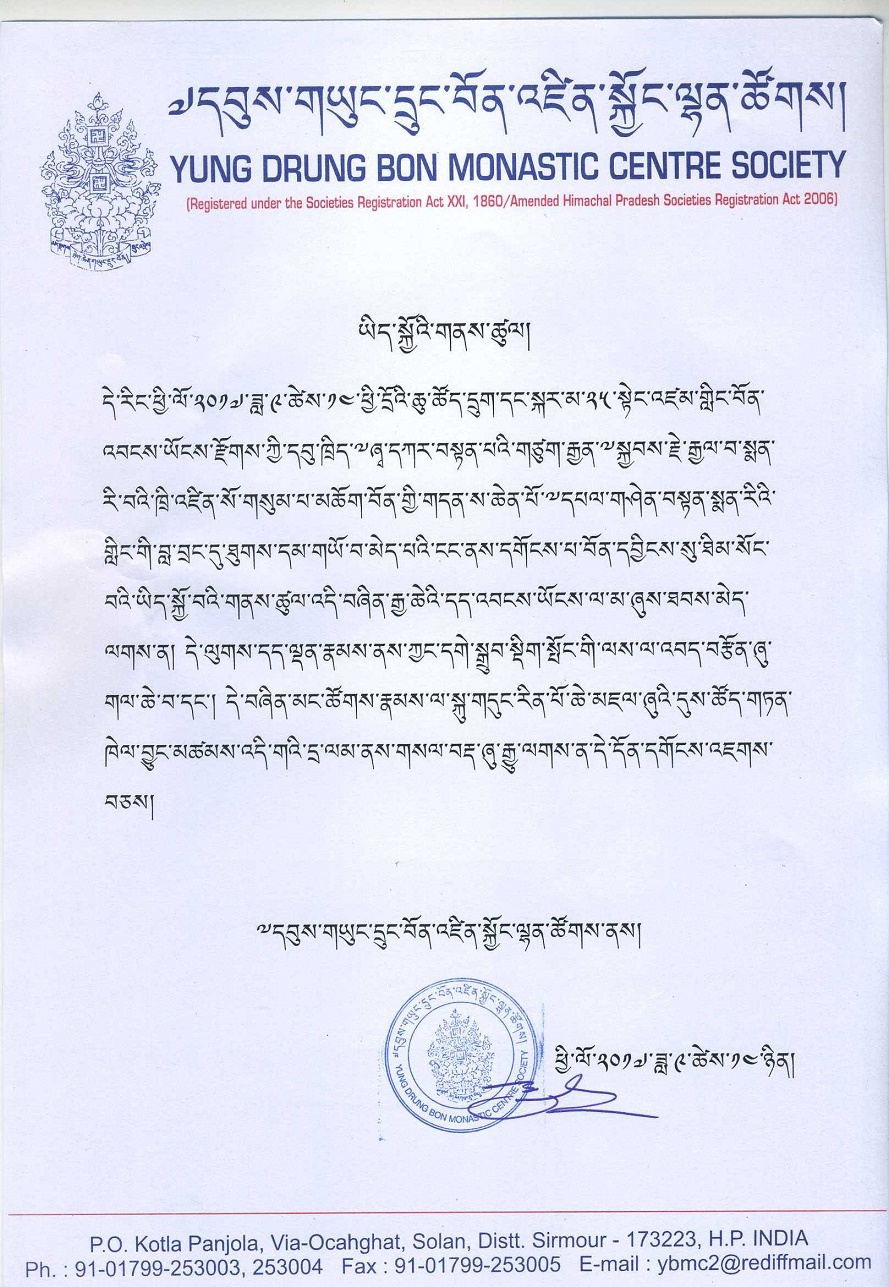 ༸དབུས་གཡུང་དྲུང་བོན་འཛིན་སྐྱོང་ལྷན་ཚོགས།
YUNG DRUNG BON MONASTIC CENTRE SOCIETY
(Registered under the Societies Registration Act XXI, 1860/Amended Himachal Pradesh Societies Registration Act 2006)
ཡིད་སྐྱོའི་གནས་ཚུལ།
དེ་རིང་ཕྱི་ལོ་༢༠༡༧་ཟླ་༩་ཚེས་༡༤་ཕྱི་དྲོའི་ཆུ་ཚོད་དྲུག་དང་སྐར་མ་༢༥་སྟེང་འཛམ་གླིང་བོན་
འབངས་ཡོངས་རྫོགས་ཀྱི་དབུ་ཁྲིད་༸ཞྭ་དཀར་བསྟན་པའི་གཙུག་རྒྱན་༸སྐྱབས་རྗེ་རྒྱལ་བ་སྨན་
རི་བའི་ཁྲི་འཛིན་སོ་གསུམ་པ་མཆོག་བོན་གྱི་གདན་ས་ཆེན་པོ་༸དཔལ་གཤེན་བསྟན་སྨན་རིའི་
གླིང་གི་བླ་བྲང་དུ་ཐུགས་དམ་གཡོ་བ་མེད་པའི་ངང་ནས་དགོངས་པ་བོན་དབྱིངས་སུ་ཐིམ་སོང་
བའི་ཡིད་སྐྱོ་བའི་གནས་ཚུལ་འདི་བཞིན་རྒྱ་ཆེའི་དད་འབངས་ཡོངས་ལ་མ་ཞུས་ཐབས་མེད་
ལགས་ན། དེ་ལུགས་དད་ལྡན་རྣམས་ནས་ཀྱང་དགེ་སྒྲུབ་སྡིག་སྤོང་གི་ལས་ལ་འབད་བརྩོན་ཞུ་
གལ་ཆེ་བ་དང་། དེ་བཞིན་མང་ཚོགས་རྣམས་ལ་སྐུ་གདུང་རིན་པོ་ཆེ་མཇལ་ཞུའི་དུས་ཚོད་གཏན་
ཁེལ་བྱུང་མཚམས་འདི་གའི་དྲ་ལམ་ནས་གསལ་བརྡ་ཞུ་རྒྱུ་ལགས་ན་དེ་དོན་དགོངས་འཇགས་
བཅས།
༸དབུས་གཡུང་དྲུང་བོན་འཛིན་སྐྱོང་ལྷན་ཚོགས་ནས།
༸དབུས་གཡུང་དྲུང་བོན་འཛིན་སྐྱོང་ལྷན་ཚོགས།
YUNG DRUNG BON MONASTIC CENTRE SOCIETY
ཕྱི་ལོ་༢༠༡༧་ཟླ་༩་ཚེས་༡༤་ཉིན།
P.O. Kotla Panjola, Via-Ocahghat, Solan, Distt. Sirmour - 173223, H.P. INDIA
Ph. : 91-01799-253003, 253004 Fax : 91-01799-253005 E-mail : ybmc2@rediffmail.com